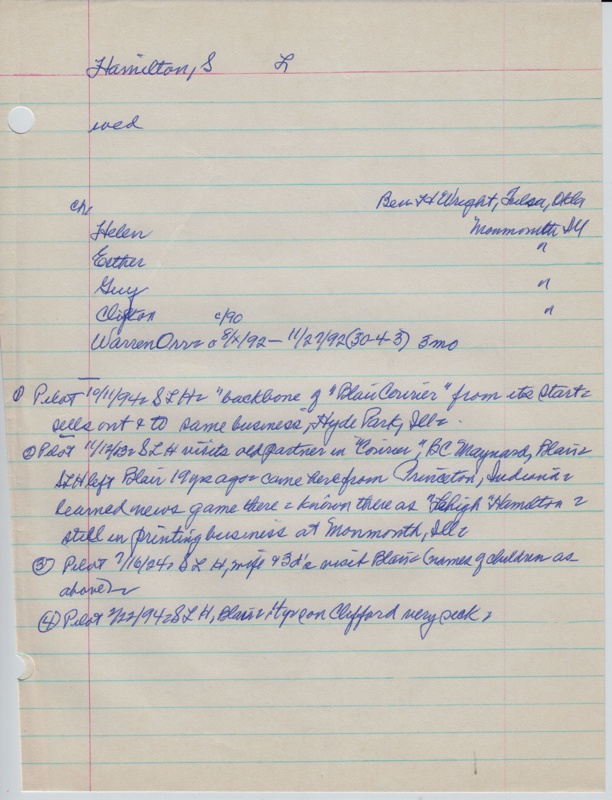 Hamilton, S L
wed
ch:
Ben H Wright, Tulsa, Okla
Helen Monmouth Ill
Esther "
Guy "
Clifton c/90 "
Warren Orr = 8/x/92 – 11/27/92 (30-4-3) 3mo
① Pilot 10/11/94 = S L H = "backbone of "Blair Courier" from its start =
sells out & to same business", Hyde Park, Ill =
② Pilot 11/12/13 = S L H visits old partner in "Courier", BC Maynard, Blair =
SLH left Blair 19 yrs ago = came here from Princeton, Indiana =
learned news game there = known there as "Lehigh" Hamilton =
still in printing business at Monmouth, Ill =
③ Pilot 7/16/24 = S L H, wife & 3 d's visit Blair = (names of children as
above) =
④ Pilot 2/22/94 = S L H, Blair = 4 yr son Clifford very sick =